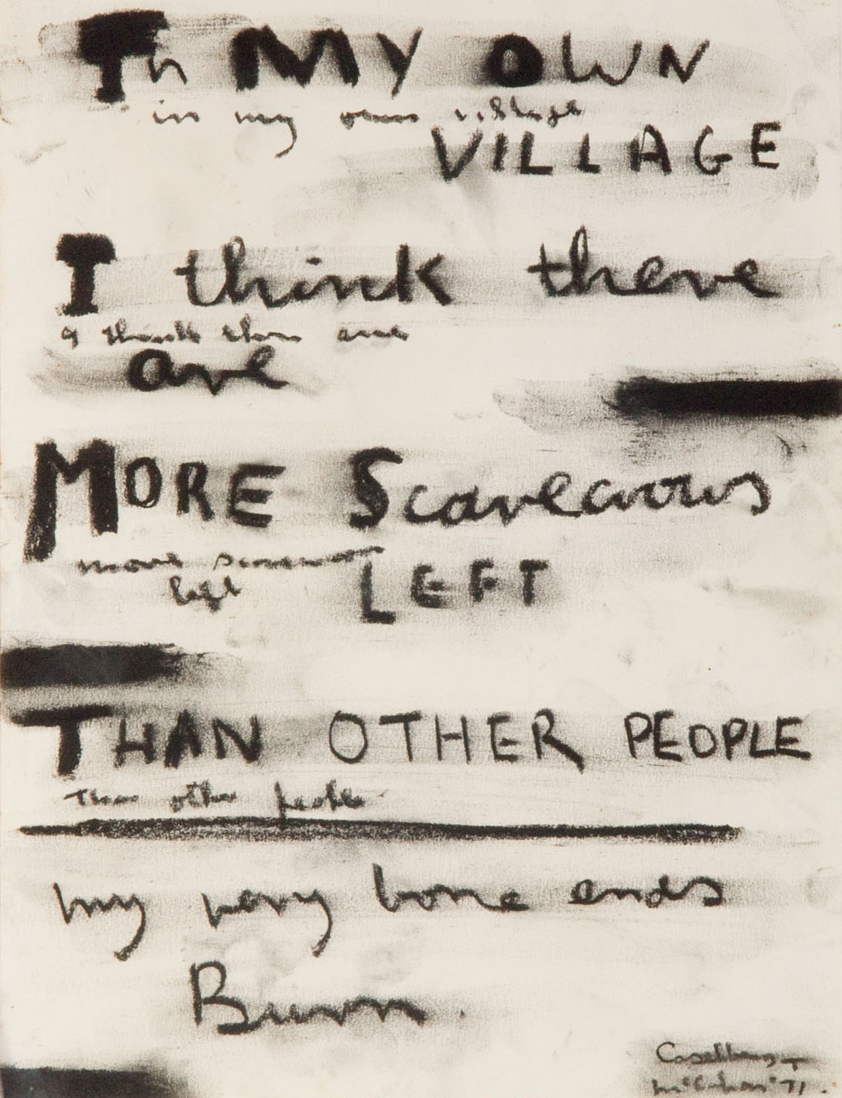 In MY OWN
in my own village
VILLAGE
I think there
I think there are
are
MORE Scarecrows
more
left LEFT
THAN OTHER PEOPLE
Than other people
my very bone ends
Burn.
McCahon '71.